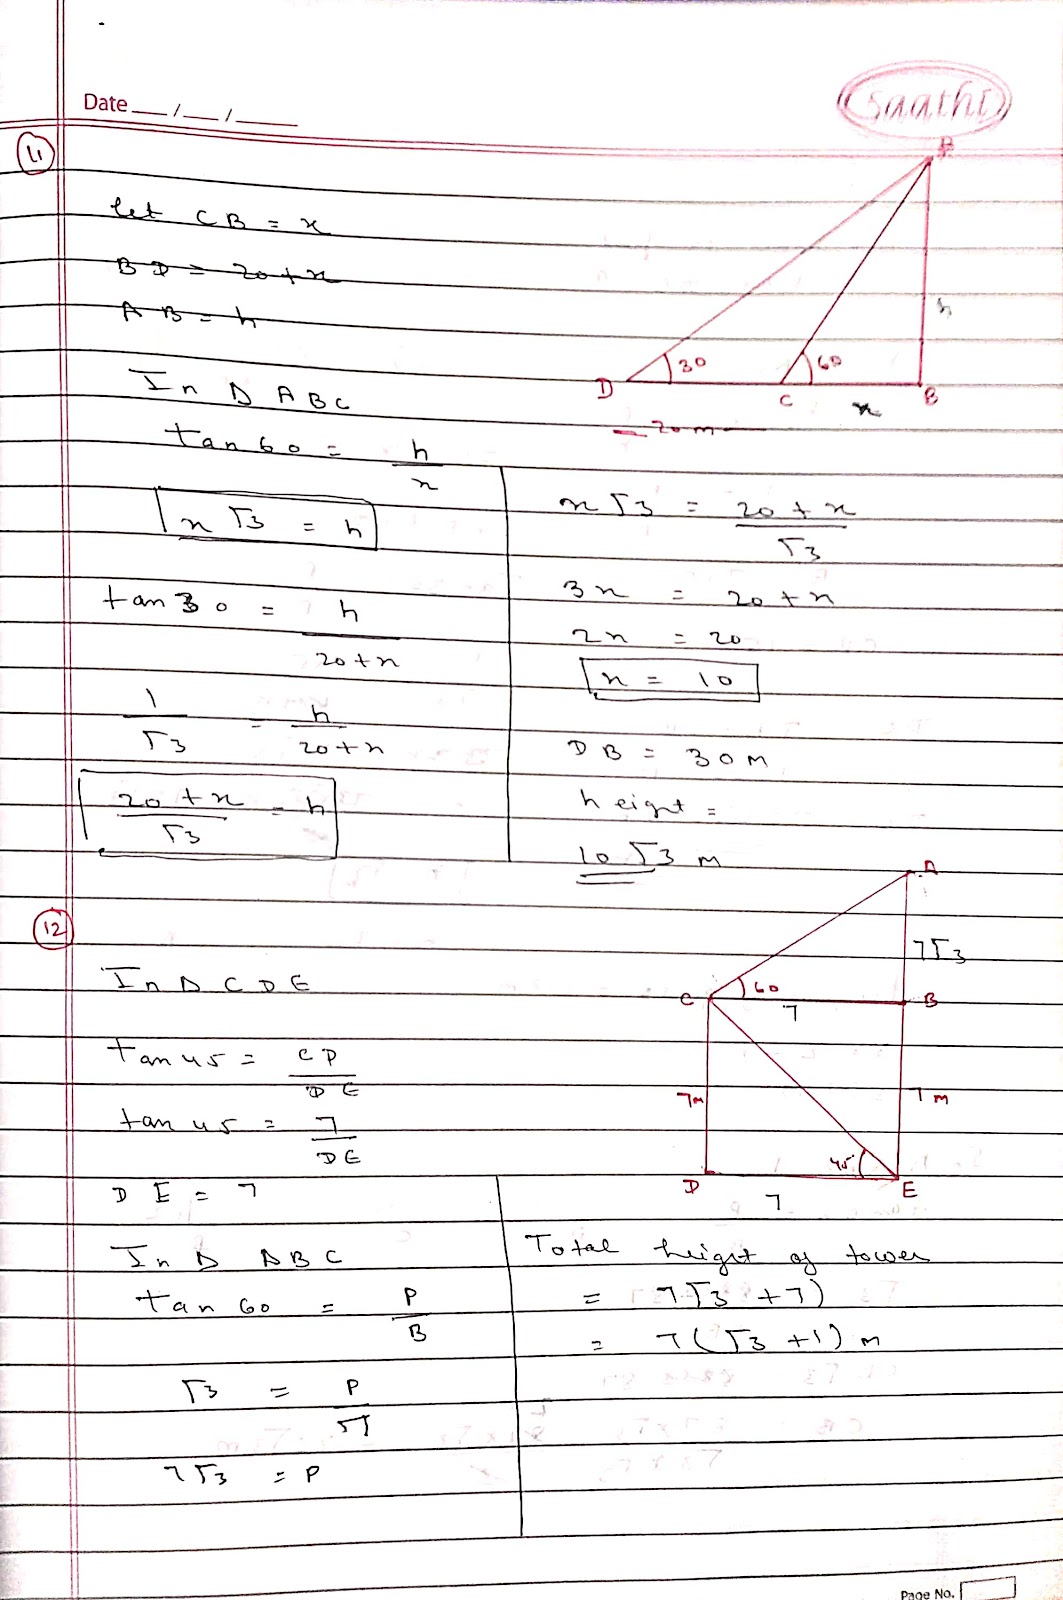 Date __/__/____
Saathi
11
let CB = x
BD = 20+x
AB = h
In Δ ABC
tan 60 = h/x
x√3 = h
tan 30 = h/20+x
1/√3 = h/20+x
20+x/√3 = h
x√3 = 20+x/√3
3x = 20+x
2x = 20
x = 10
DB = 30m
height =
10√3 m
A
h
30
60
D
C
x
B
20 m
12
In Δ CDE
tan 45 = CD/DE
tan 45 = 7/DE
DE = 7
In Δ ABC
tan 60 = P/B
√3 = P/7
7√3 = P
Total height of tower
= 7√3 + 7)
= 7(√3 + 1) m
A
7√3
C
60
7
B
7m
7 m
45°
D
7
E
Page No.